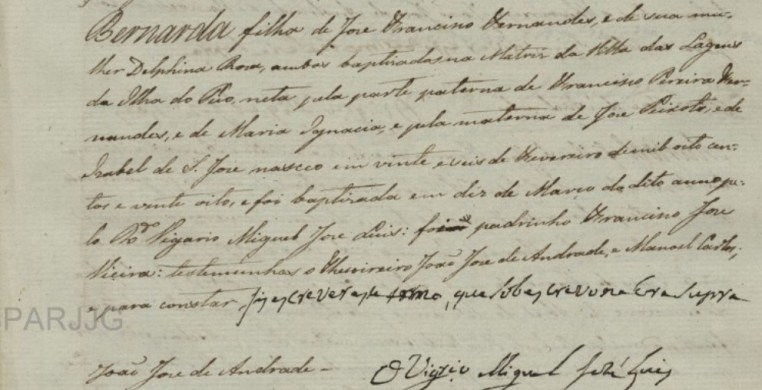 Bernarda filha de Jose Francisco Fernandes, e de sua mu-
lher Delphina Rosa, ambos baptizados na Matriz da Villa das Lagens
da Ilha do Pico, neta pela parte paterna de Francisco Pereira Fer-
nandes, e de Maria Ignacia, e pela materna de Jose Peixoto, e de
Izabel de S. Jose nasceo em vinte e seis de Fevereiro de mil oito cen-
tos e vinte oito, e foi baptizada em dez de Março do dito anno pe-
lo Rdo Vigario Miguel Jose Luis: foi padrinho Francisco Jose
Vieira: testemunhas o Thesoireiro João Jose de Andrade, e Manoel Cardos,
e para constar fiz escrever este termo, que sobescrevi na Era Supra
PARJJG
João Jose de Andrade - O Vigrio Miguel José Luis